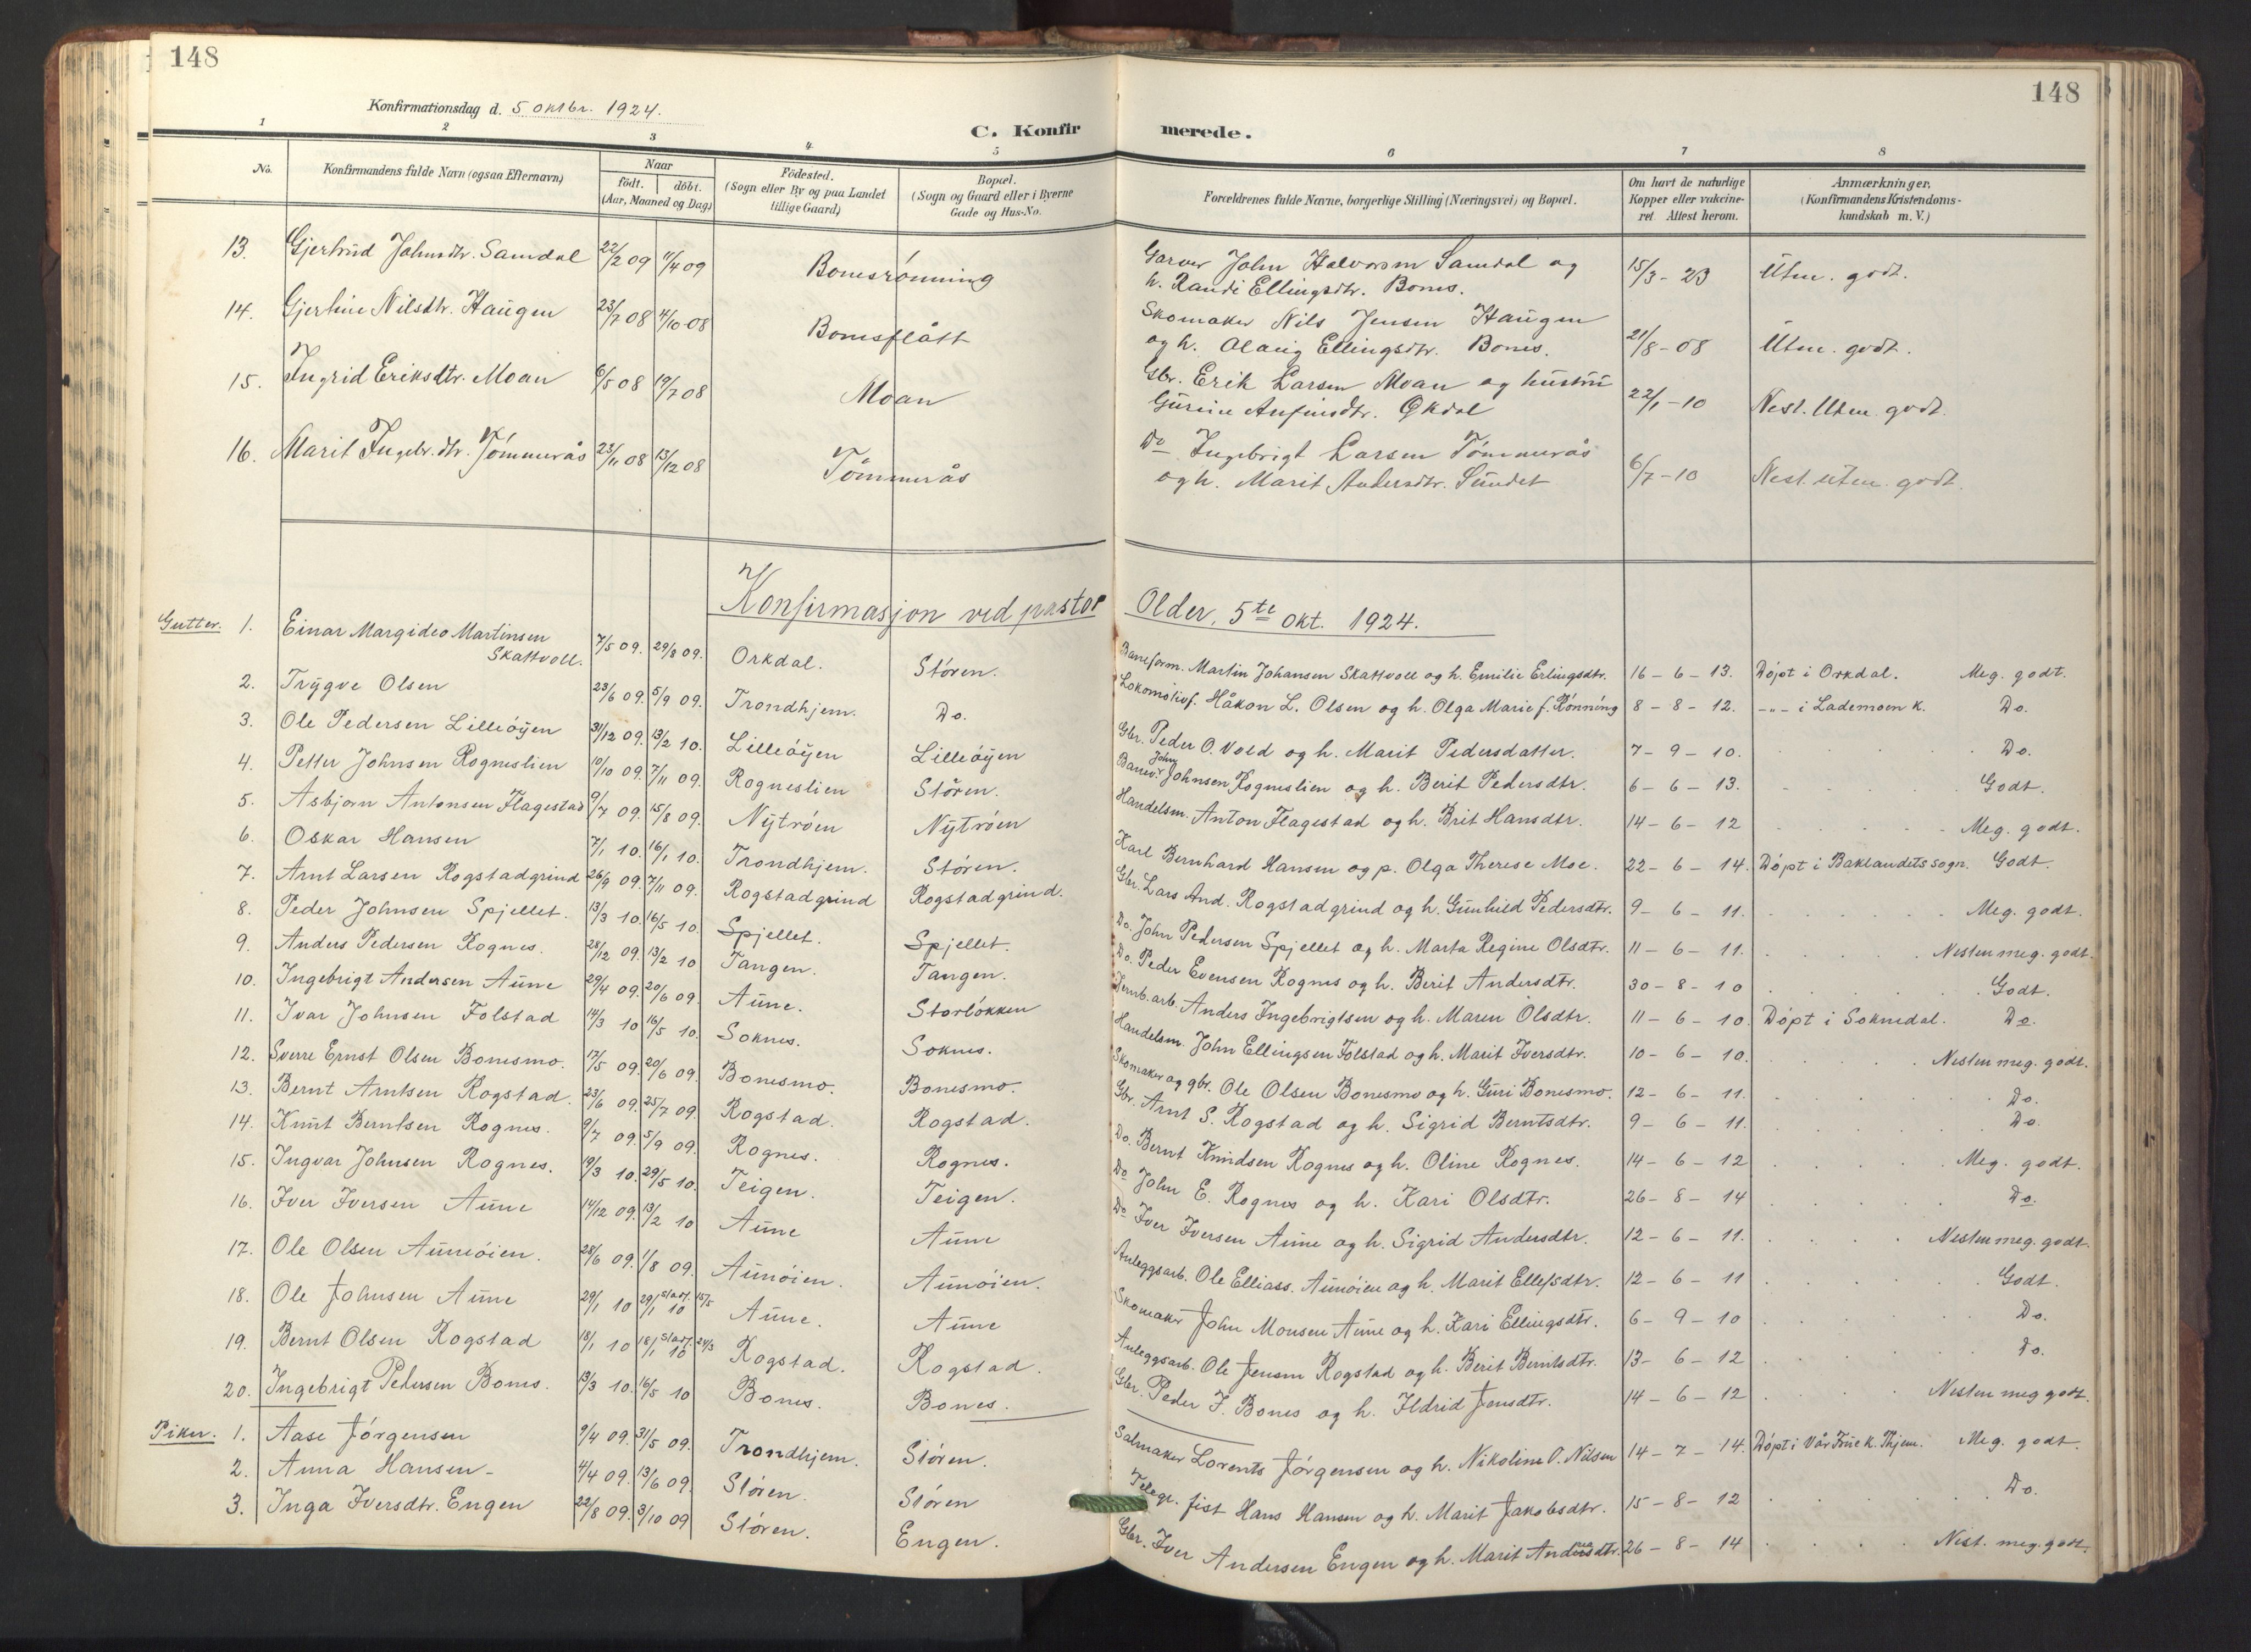 148
148
Konfirmationsdag d. 5 oktbr. 1924.
C. Konfir merede.
1 2 3 4 5 6 7 8
No. Konfirmandens fulde Navn (ogsaa Efternavn) Naar födt. döbt. (Aar, Maaned og Dag) Födested. (Sogn eller By og paa Landet tillige Gaard) Bopæl. (Sogn og Gaard eller i Byerne Gade og Hus-No. Forældrenes fulde Navne, borgerlige Stilling (Næringsvei) og Bopæl. Om havt de naturlige Kopper eller vakcineret Attest herom. Anmærkninger. (Konfirmandens Kristendomskundskab m. V.)
13. Gjertrud Johnsdtr. Samdal 22/2 09 11/4 09 Bonesrönning Garver John Halvorsen Samdal og h. Randi Ellingsdtr. Bones. 15/3 - 23 Utm. godt.
14. Gjertine Nilsdtr. Haugen 23/7 08 4/10 08 Bonesflått Skomaker Nils Jensen Haugen og h. Olaug Ellingsdtr. Bones. 21/8 - 08 Utm. godt.
15. Ingrid Eriksdtr. Moan 6/5 08 19/7 08 Moan Gbr. Erik Larsen Moan og hustru Gurine Anfinsdtr. Økdal 22/1 - 10 Nest. Utm. godt.
16. Marit Ingebr.dtr. Tömmerås 23/11 08 13/12 08 Tömmerås Do Ingebrigt Larsen Tömmerås og h. Marit Andersdtr. Sundet 6/7 - 10 Nest. utm. godt.
Konfirmasjon ved pastor Older, 5te okt. 1924.
Gutter. 1. Einar Margideo Martinsen Skattvoll. 7/5 09. 29/8 09. Orkdal. Stören. Baneform. Martin Johansen Skattvoll og h. Emilie Erlingsdtr. 16 - 6 - 13. Döpt i Orkdal. Meg. godt.
2. Trygve Olsen 23/6 09. 5/9 09. Trondhjem. Do. Lokomotivf. Håkon L. Olsen og h. Olga Marie f. Rönning 8 - 8 - 12. -"- i Lademoen k. Do.
3. Ole Pedersen Lilleöyen 31/12 09. 13/2 10. Lilleöyen Lilleöyen Gbr. Peder O. Vold og h. Marit Pedersdatter. 7 - 9 - 10. Do.
4. Petter Johnsen Rogneslien 10/10 09. 7/11 09. Rogneslien Stören. Banev. John Johnsen Rogneslien og h. Berit Pedersdtr. 6 - 6 - 13. Godt.
5. Asbjorn Antonsen Flagestad 9/7 09. 15/8 09. Nytröen Nytröen Handelsm. Anton Flagestad og h. Brit Hansdtr. 14 - 6 - 12 Meg. godt.
6. Oskar Hansen 7/1 10. 16/1 10. Trondhjem. Stören. Karl Bernhard Hansen og p. Olga Therese Moe. 22 - 6 - 14. Döpt i Baklandets sogn. Godt.
7. Arnt Larsen Rogstadgrind 26/9 09. 7/11 09. Rogstadgrind Rogstadgrind. Gbr. Lars And. Rogstadgrind og h. Gunhild Pedersdtr. 9 - 6 - 11. Meg. godt.
8. Peder Johnsen Spjellet. 13/3 10. 16/5 10. Spjellet. Spjellet. Do. John Pedersen Spjellet og h. Marta Regine Olsdtr. 11 - 6 - 11. Nesten meg. godt.
9. Anders Pedersen Rognes. 28/12 09. 13/2 10 Tangen. Tangen. Do. Peder Evensen Rognes og h. Berit Andersdtr. 30 - 8 - 10 Godt.
10. Ingebrigt Andersen Aune 29/4 09. 20/6 09. Aune. Storlökken Jernb.arb. Anders Ingebrigtsen og h. Maren Olsdtr. 11 - 6 - 10. Döpt i Soknedal. Do.
11. Ivar Johnsen Folstad 14/3 10 16/5 10. Soknes. Soknes. Handelsm. John Ellingsen Folstad og h. Marit Iversdtr. 10 - 6 - 10. Nesten meg. godt.
12. Sverre Ernst Olsen Bonesmo. 17/5 09. 20/6 09. Bonesmo. Bonesmo. Skomaker og gbr. Ole Olsen Bonesmo og h. Guri Bonesmo. 12 - 6 - 11. Do.
13. Bernt Arntsen Rogstad. 23/6 09. 25/7 09. Rogstad. Rogstad. Gbr. Arnt S. Rogstad og h. Sigrid Berntsdtr. 9 - 6 - 11. Do.
14. Knut Berntsen Rognes. 9/7 09. 5/9 09. Rognes. Rognes. Do. Bernt Knudsen Rognes og h. Oline Rognes. 14 - 6 - 12 Meg. godt.
15. Ingvar Johnsen Rognes. 19/3 10. 29/5 10. Teigen. Teigen. Do John E. Rognes og h. Kari Olsdtr. 26 - 8 - 14 Do.
16. Iver Iversen Aune 14/12 09. 13/2 10 Aune Aune Do Iver Iversen Aune og h. Sigrid Andersdtr. 12 - 6 - 11. Nesten meg. godt.
17. Ole Olsen Auneöien. 28/6 09. 1/8 09. Aunöien. Aunöien. Anleggsarb. Ole Elliass. Aunöien og h. Marit Ellefsdtr. 12 - 6 - 11 Godt.
18. Ole Johnsen Aune 29/1 10 29/1 10 st.af. 15/5 Aune. Aune Skomaker John Monsen Aune og h. Kari Ellingsdtr. 6 - 9 - 10 Do.
19. Bernt Olsen Rogstad 18/1 10 18/1 10 st.af. 24/3 Rogstad. Rogstad. Anleggsarb. Ole Jensen Rogstad og h. Berit Berntsdtr. 13 - 6 - 12 Do.
20. Ingebrigt Pedersen Bones. 13/3 10. 16/5 10 Bones. Bones. Gbr. Peder I. Bones og h. Ildrid Jensdtr. 14 - 6 - 12 Nesten meg godt.
Piker. 1. Aase Jörgensen 9/4 09. 31/5 09. Trondhjem. Stören. Salmaker Lorents Jörgensen og h. Nikoline O. Nilsen 14 - 7 - 14. Döpt i Vår Frue k. Thjem. Meg. godt.
2. Anna Hansen - 4/4 09. 13/6 09. Stören. Stören Telegr. fist Hans Hansen og h. Marit Jakobsdtr. 15 - 8 - 12 Do.
3. Inga Iversdtr. Engen 22/8 09. 3/10 09 Stören. Engen. Gbr. Iver Andersen Engen og h. Marit Andersdtr. 26 - 8 - 14 Nest. meg. godt.